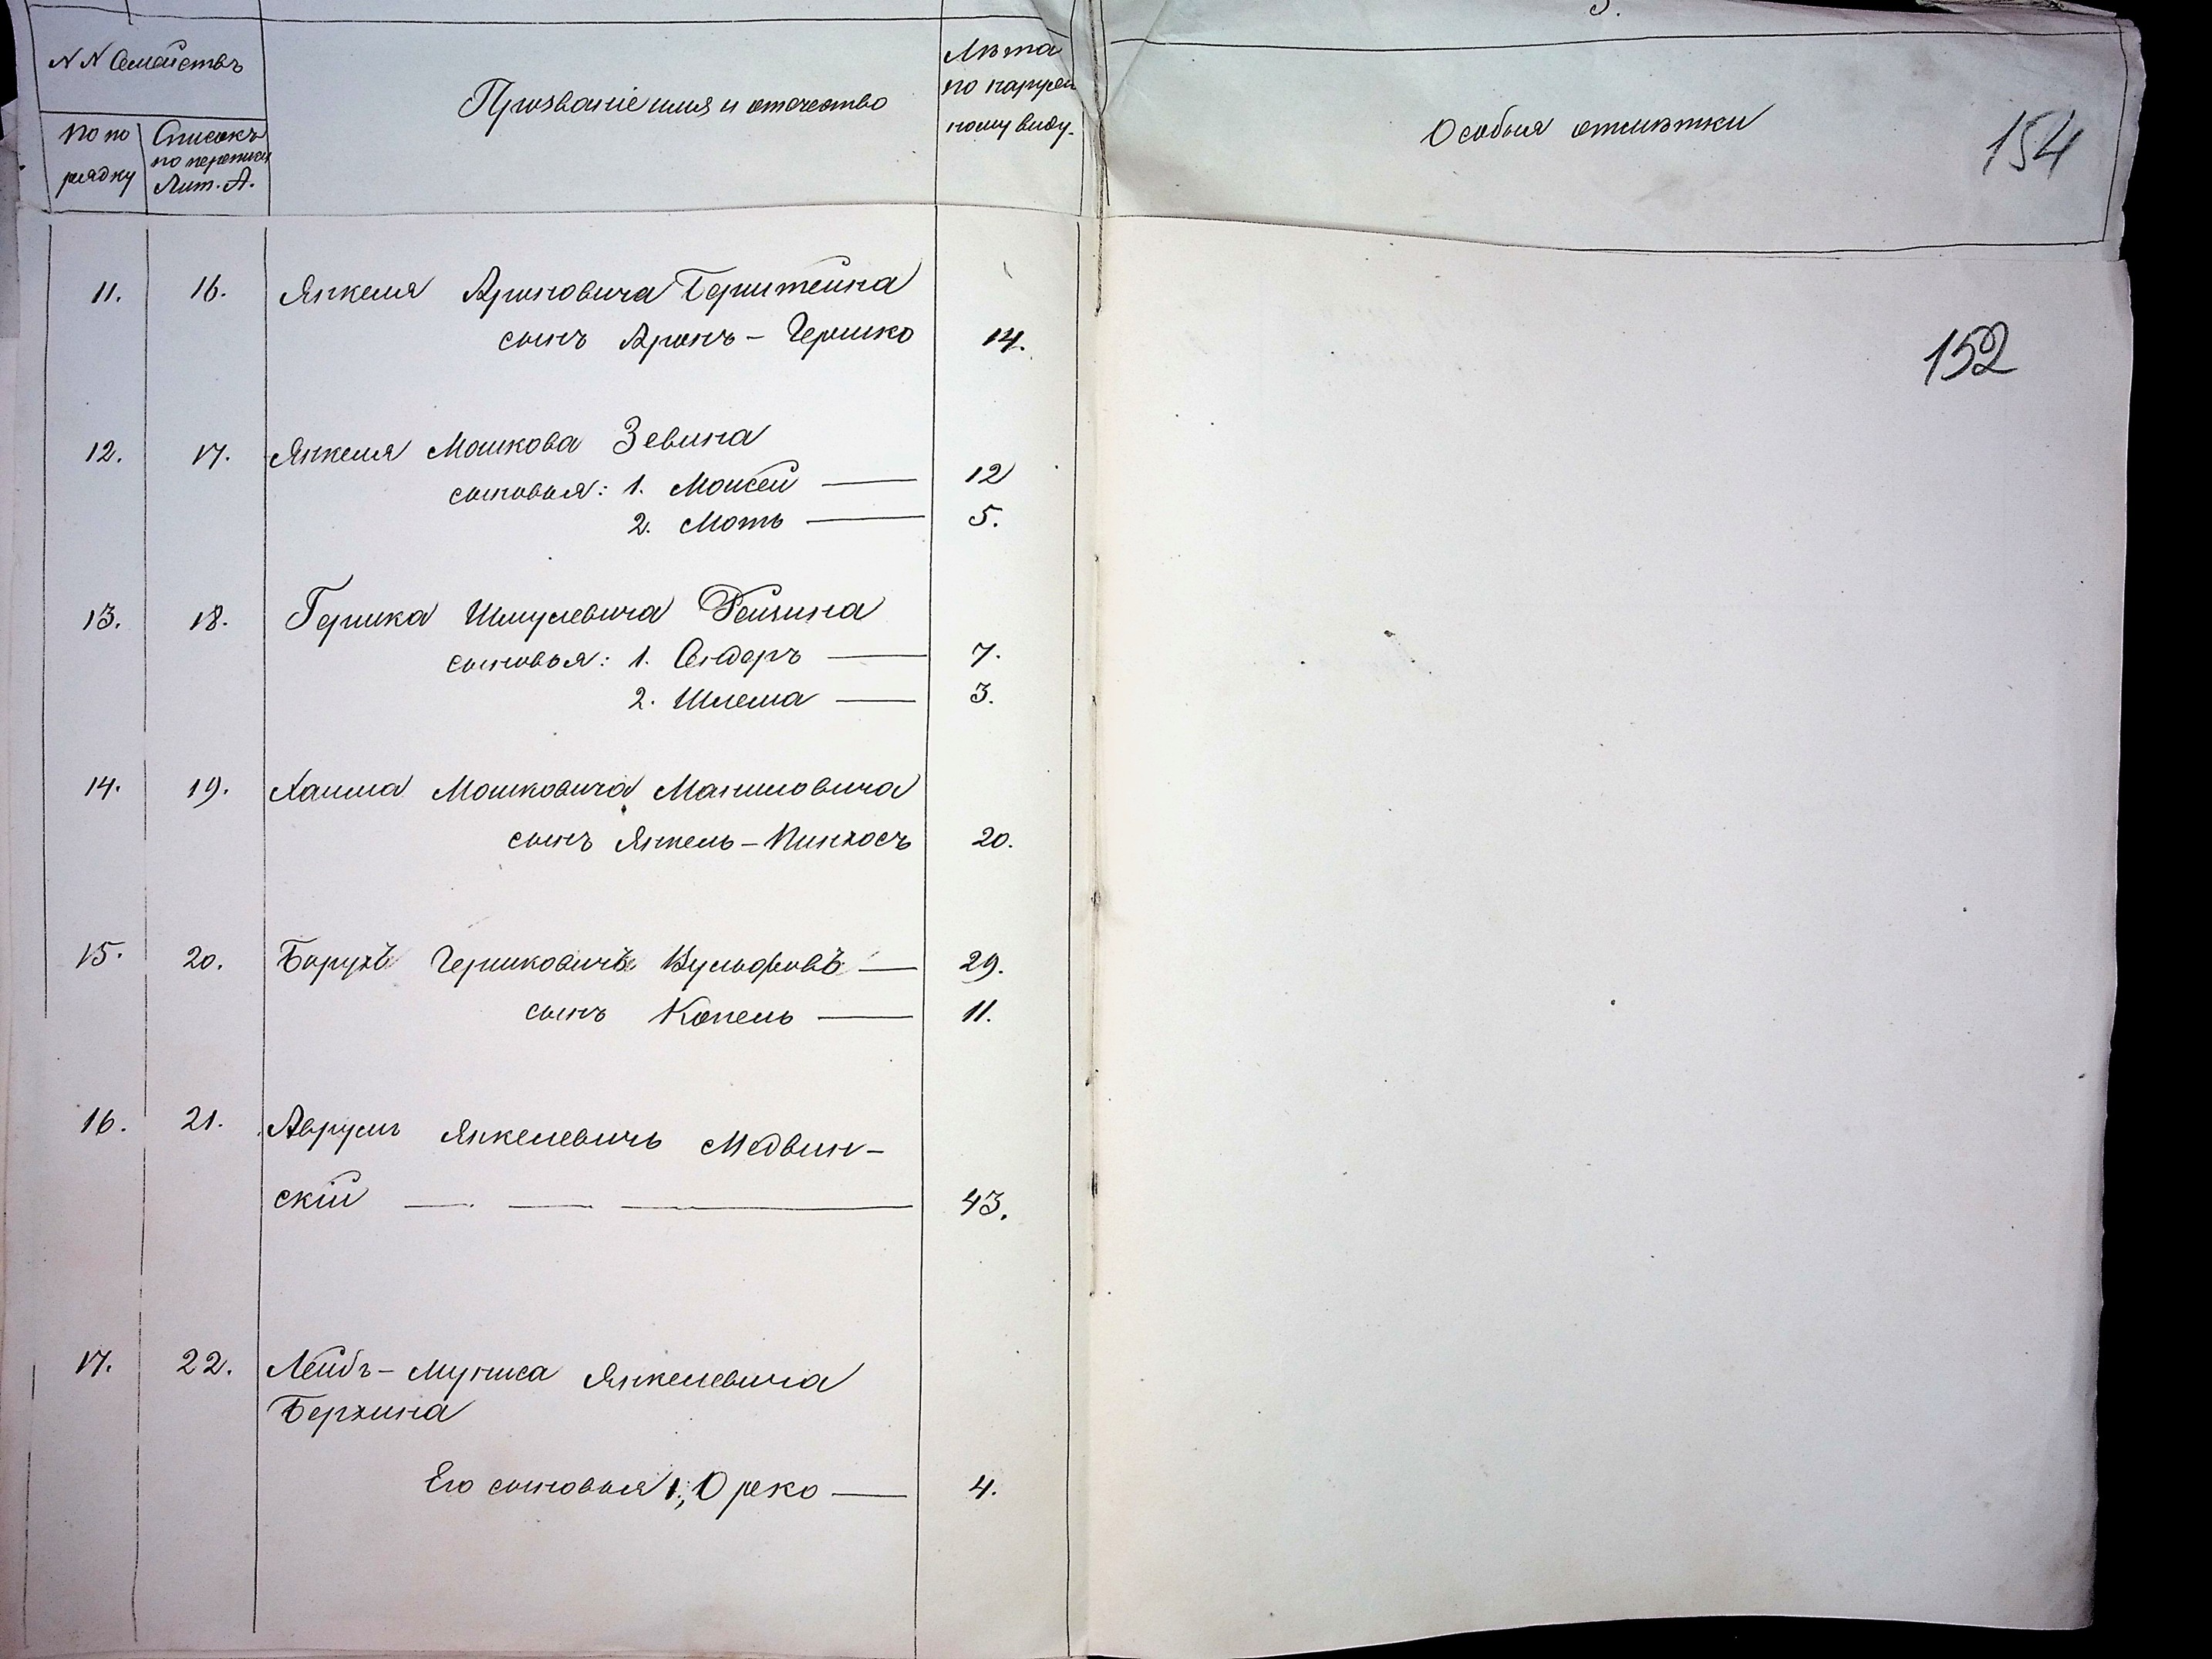 3.
N N Семействъ
По порядку
Списокъ по переписи Лит. А.
Прозваніе имя и отечество
Лѣта по наружному виду.
Особыя отмѣтки
154
152
11. 16. Янкеля Ароновича Бернштейна
сынъ Аронъ - Гершко 14.
12. 17. Янкеля Мошкова Зевина
сыновья: 1. Моисей 12
2. Моть 5.
13. 18. Гершка Шмулевича Фейгина
сыновья: 1. Сендеръ 7.
2. Шлема 3.
14. 19. Хаима Мошковича Манимовича
сынъ Янкель - Пинхосъ 20.
15. 20. Борухъ Гершковичъ Вульфовъ 29.
сынъ Копель 11.
16. 21. Аврумъ Янкелевичъ Медвин-
скій 43.
17. 22. Лейбъ - Муниса Янкелевича
Берхина
Его сыновья 1; Ореко 4.